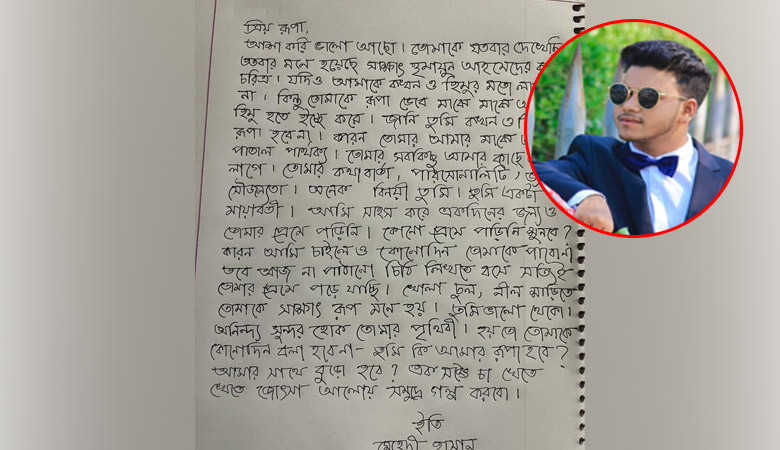 প্রিয় রূপা,
আশা করি ভালো আছো। তোমাকে যতবার দেখেছি
ততবার মনে হয়েছে সাক্ষাৎ হুমায়ুন আহমেদের
চরিত্র। যদিও আমাকে কখন ও হিমুর মতো
না। কিন্তু তোমাকে রূপা ভেবে মাঝে মাঝে
হিমু হতে ইচ্ছে করে। জানি তুমি কখন ও
রূপা হবেনা। কারন তোমার আমার মাঝে
পাতাল পার্থক্য। তোমার সবকিছু আমার কাছে
লাগে। তোমার কথাবার্তা, পারসোনালিটি,
সৌজন্যতা। অনেক বিনয়ী তুমি। তুমি একটা
মায়াবতী। আমি সাহস করে একদিনের জন্য ও
তোমার প্রেমে পড়িনি। কেনো প্রেমে পড়িনি শুনবে?
কারন আমি চাইলে ও কোনোদিন তোমাকে পাবোনা
তবে আজ না পাঠানো চিঠি লিখতে বসে সত্যিই
তোমার প্রেমে পড়ে যাচ্ছি। খোলা চুল, নীল শাড়িতে
তোমাকে সাক্ষাৎ রূপা মনে হয়। তুমি ভালো থেকো।
অনিন্দ্য সুন্দর হোক তোমার পৃথিবী। হয়তো তোমাকে
কোনোদিন বলা হবেনা- তুমি কি আমার রূপা হবে?
আমার সাথে বুড়ো হবে? এক সঙ্গে চা খেতে
খেতে জোৎসা আলোয় সমুদ্র গল্প করবো।
ইতি
মেহেদী হাসান